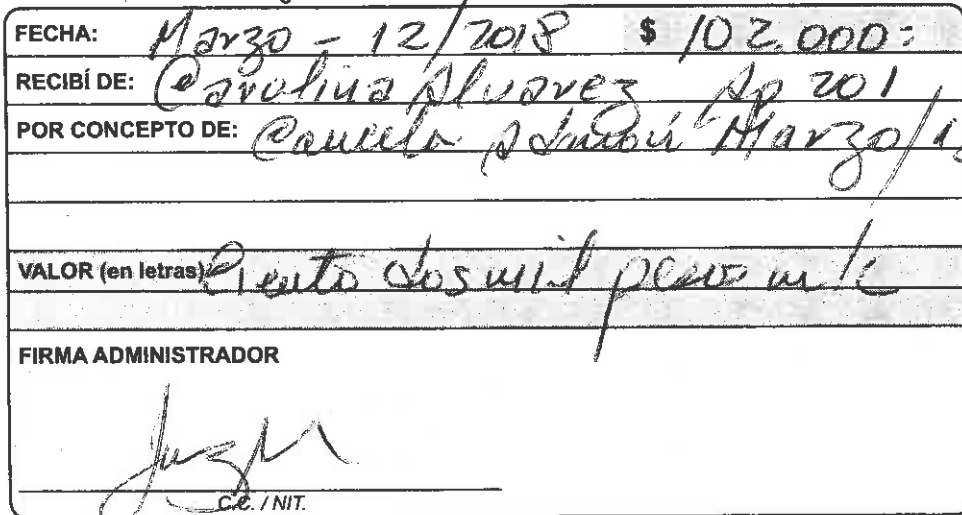 FECHA: Marzo - 12/2018 $ 102.000=
RECIBÍ DE: Carolina Alvarez Ap 201
POR CONCEPTO DE: Cancela Admón Marzo/
VALOR (en letras) Ciento dos mil pesos m/c
FIRMA ADMINISTRADOR
C.C. / NIT.